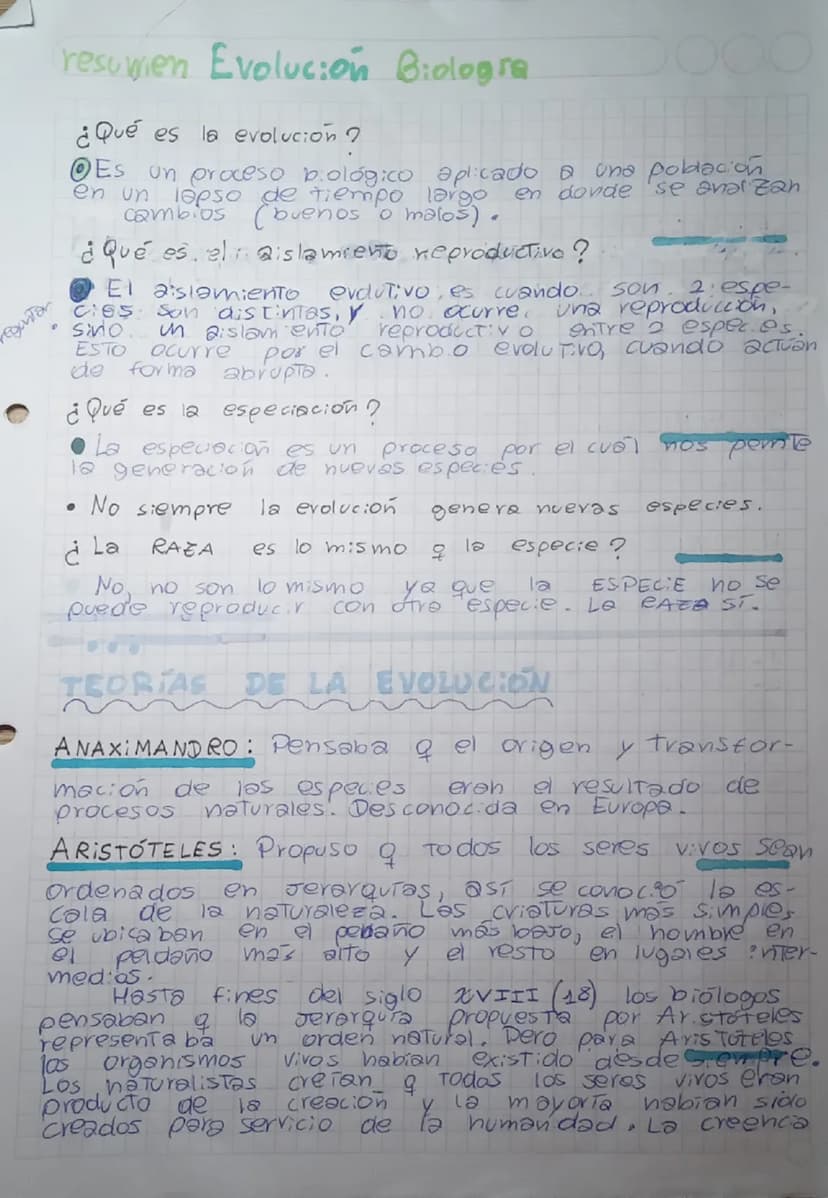 resumen Evolución Biología
¿Qué es la evolución?
Es un proceso biológico aplicado a una población
en un lapso de tiempo largo en donde se analizan
cambios (buenos o malos).
¿Qué es el aislamiento reproductivo?
El aislamiento evolutivo es cuando son 2 espe-
cies son distintas, y no ocurre una reproducción,
sino un aislamiento reproductivo entre 2 especies.
ESTO ocurre por el cambio evolutivo, cuando actúan
de forma abrupta.
¿Qué es la especiación?
La especiación es un proceso por el cuál nos permite
la generación de nuevas especies.
• No siempre la evolución genera nuevas especies.
¿La RAZA es lo mismo q la especie?
No, no son lo mismo ya que la ESPECIE no se
puede reproducir con otra especie. La RAZA SÍ.
TEORÍAS DE LA EVOLUCIÓN
ANAXIMANDRO: Pensaba q el origen y transfor-
mación de las especies eran el resultado de
procesos naturales. Desconocida en Europa.
ARISTÓTELES: Propuso q todos los seres vivos sean
ordenados en jerarquías, así se conoció la es-
cala de la naturaleza. Las criaturas más simples
se ubicaban en el peldaño más bajo, el hombre en
el peldaño más alto y el resto en lugares inter-
medios.
Hasta fines del siglo XVIII (18) los biólogos
pensaban q la jerarquía propuesta por Aristóteles
representaba un orden natural. Pero para Aristóteles
los organismos vivos habían existido desde siempre.
Los naturalistas creían q todos los seres vivos eran
producto de la creación y la mayoría habían sido
creados para servicio de la humanidad. La creencia